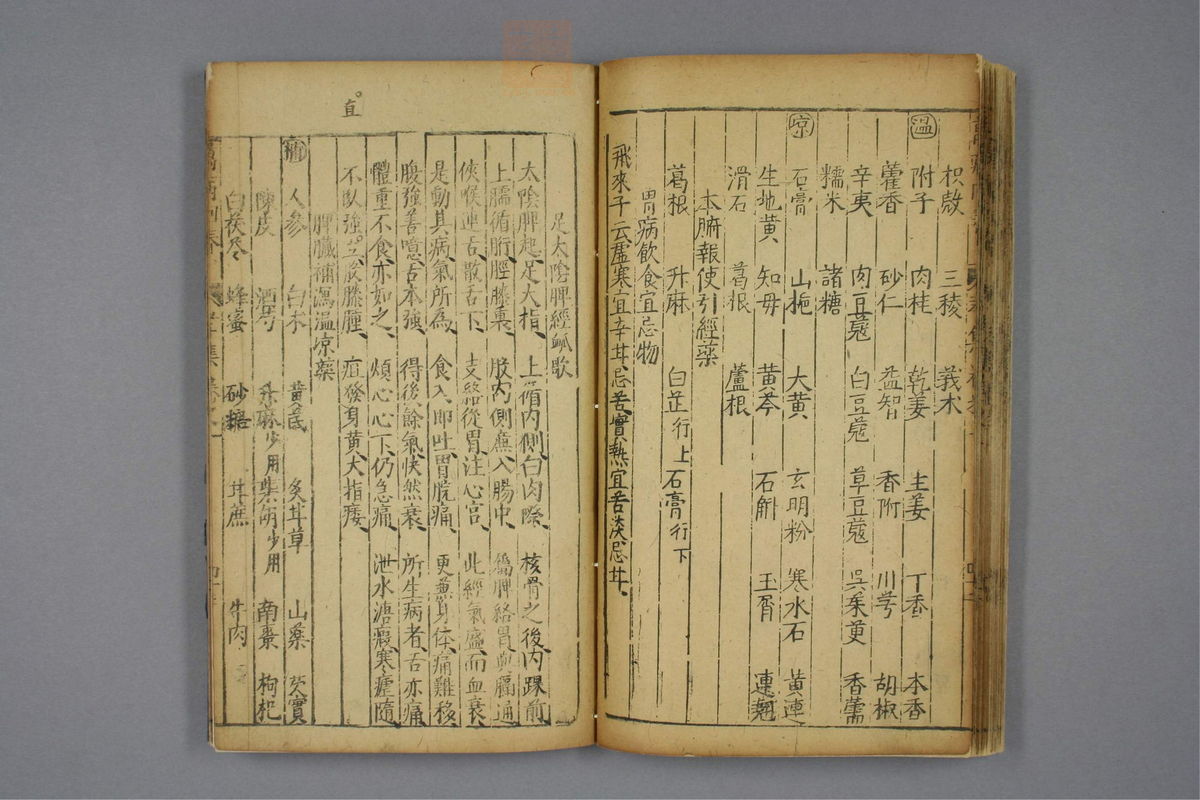 枳殼 三稜 莪术
溫 附子 肉桂 乾姜 生姜 丁香 木香
藿香 砂仁 益智 香附 川芎 胡椒
辛夷 肉豆蔻 白豆蔻 草豆蔻 吳茱萸 香薷
糯米 諸糖
凉 石膏 山梔 大黄 玄明粉 寒水石 黄連
生地黄 知母 黄芩 石斛 玉屑 連翹
滑石 葛根 蘆根
本腑報使引經藥
葛根 升麻 白芷行上 石膏行下
胃病飲食宜忌物
飛來子云虛寒宜辛甘忌苦實熱宜苦淡忌甘
直
足太陰脾經 歌
太陰脾起足大指 上循内側白肉際 核骨之後内踝前
上臑循胻脛膝裏 股内側廉入腸中 屬脾絡胃 膈通
俠喉連舌散舌下 支絡從胃注心宫 此經氣盛而血衰
是動其病氣所為 食入即吐胃脘痛 更兼身体痛難移
腹強善噫舌本強 得後餘氣快然衰 所生病者舌亦痛
體重不食亦如之 煩心心下仍急痛 泄水溏瘕寒瘧隨
不臥強立股膝腫 疸發身黄大指痿
脾臟補瀉溫凉藥
補 人參 白术 黄芪 炙甘草 山藥 芡實
陳皮 酒芍 升麻少用 柴胡少用 南棗 枸杞
白茯苓 蜂蜜 砂糖 甘蔗 牛肉